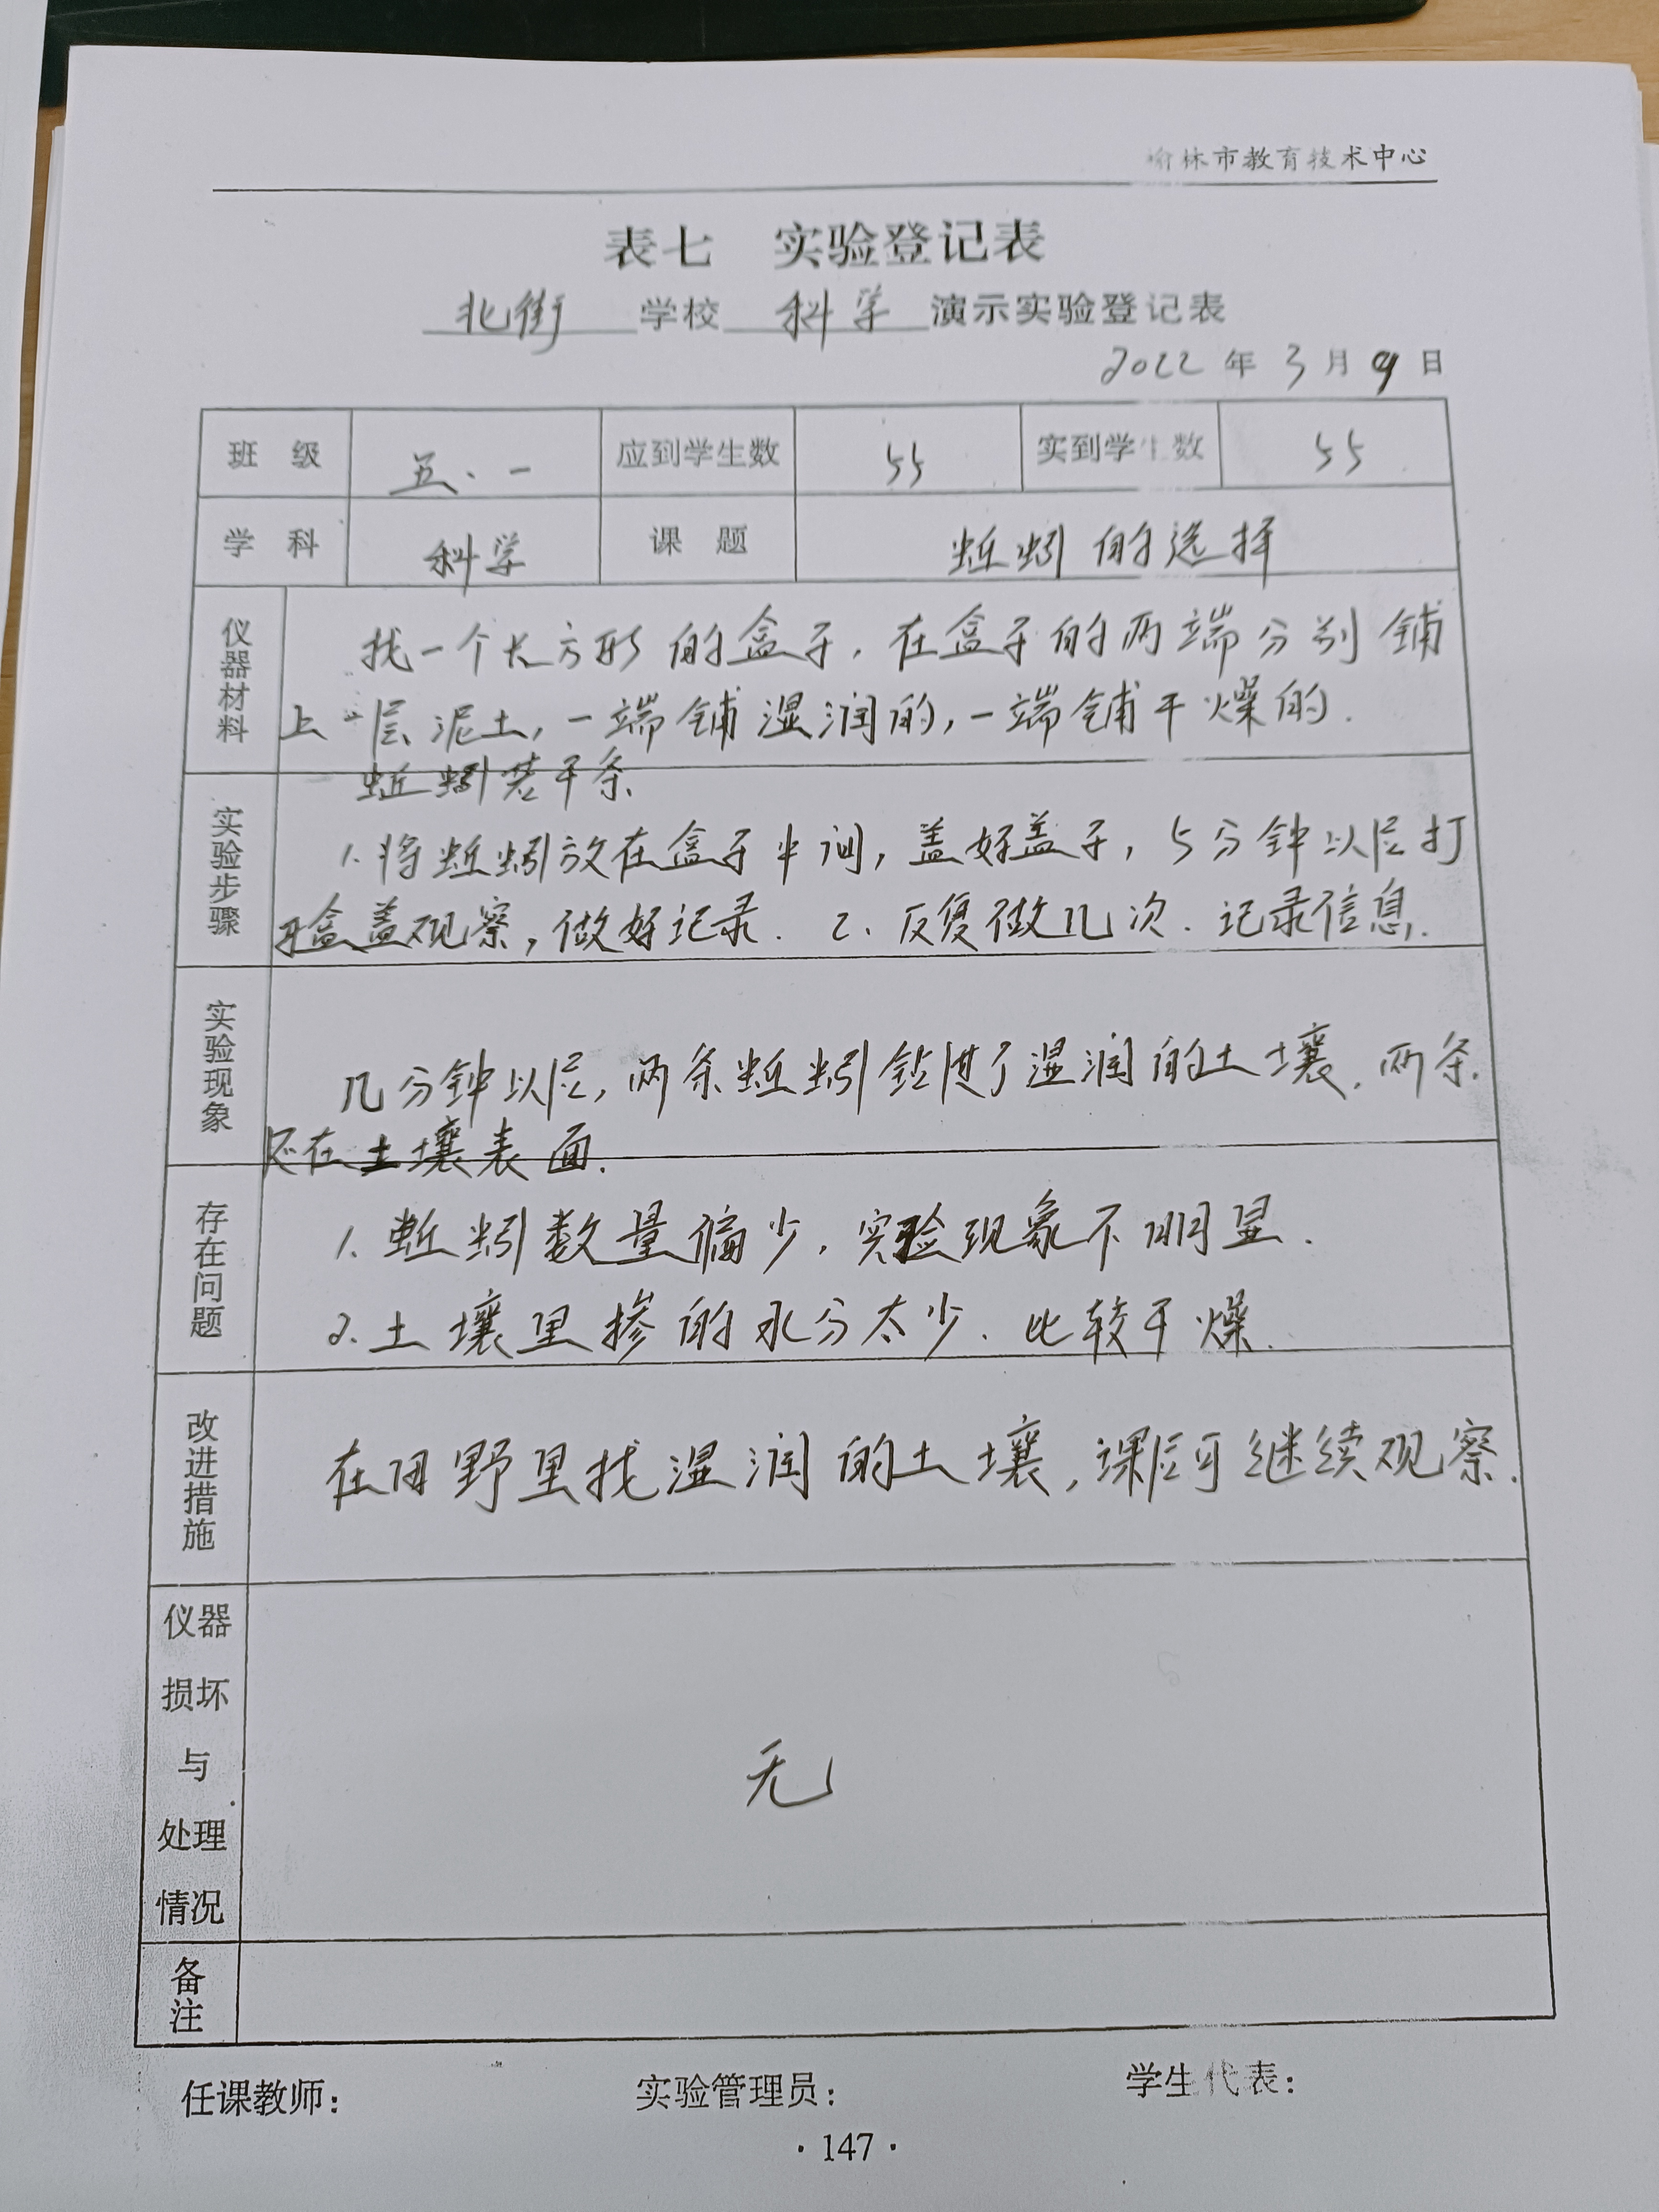 榆林市教育技术中心
表七 实验登记表
北街 学校 科学 演示实验登记表
2022 年 3 月 9 日
班 级 五.一 应到学生数 55 实到学生数 55
学 科 科学 课 题 蚯蚓的选择
仪器材料
找一个长方形的盒子,在盒子的两端分别铺
上一层泥土,一端铺湿润的,一端铺干燥的.
蚯蚓若干条
实验步骤
1.将蚯蚓放在盒子中间,盖好盖子,5分钟以后打
开盒盖观察,做好记录. 2、反复做几次.记录信息.
实验现象
几分钟以后,两条蚯蚓钻进了湿润的土壤.两条
还在土壤表面.
存在问题
1.蚯蚓数量偏少,实验现象不明显.
2.土壤里掺的水分太少.比较干燥.
改进措施
在田野里找湿润的土壤,课后可继续观察.
仪器
损坏
与
处理
情况
无
备注
任课教师: 实验管理员: 学生代表:
·147·